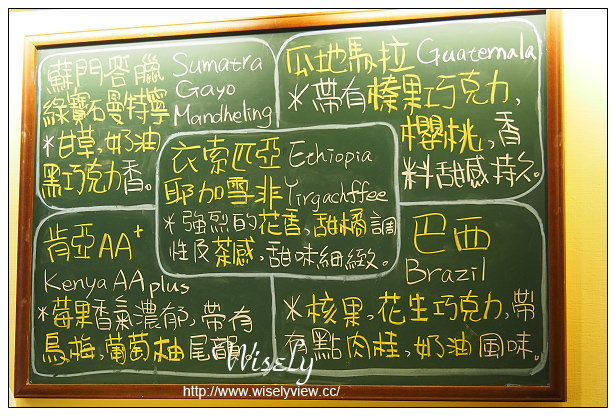 蘇門答臘 Sumatra
綠寶石曼特寧 Gayo
Mandheling
*甘草,奶油
黑巧克力香。
瓜地馬拉 Guatemala
*帶有榛果巧克力,
櫻桃,香
料甜感持久。
衣索匹亞 Ethiopia
耶加雪非 Yirgachffee
*強烈的花香,甜橘調
性及茶感,甜味細緻。
肯亞AA+
Kenya AA plus
*莓果香氣濃郁,帶有
烏梅,葡萄柚尾韻。
巴西
Brazil
*核果,花生巧克力,帶
有點肉桂,奶油風味。
WiseLy
http://www.wiselyview.cc/